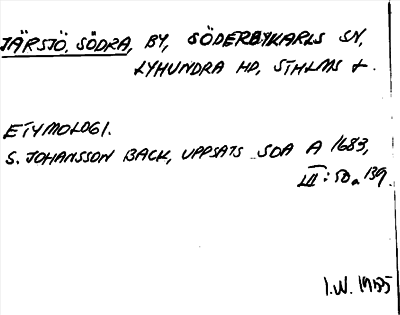 JÄRSJÖ, SÖDRA, BY, SÖDERBYKARLS SN,
LYHUNDRA HD, STHLMS L.
ETYMOLOGI.
S. JOHANSSON BACK, UPPSATS SOA A 1683,
III: 50, 139.
I.W. 1985